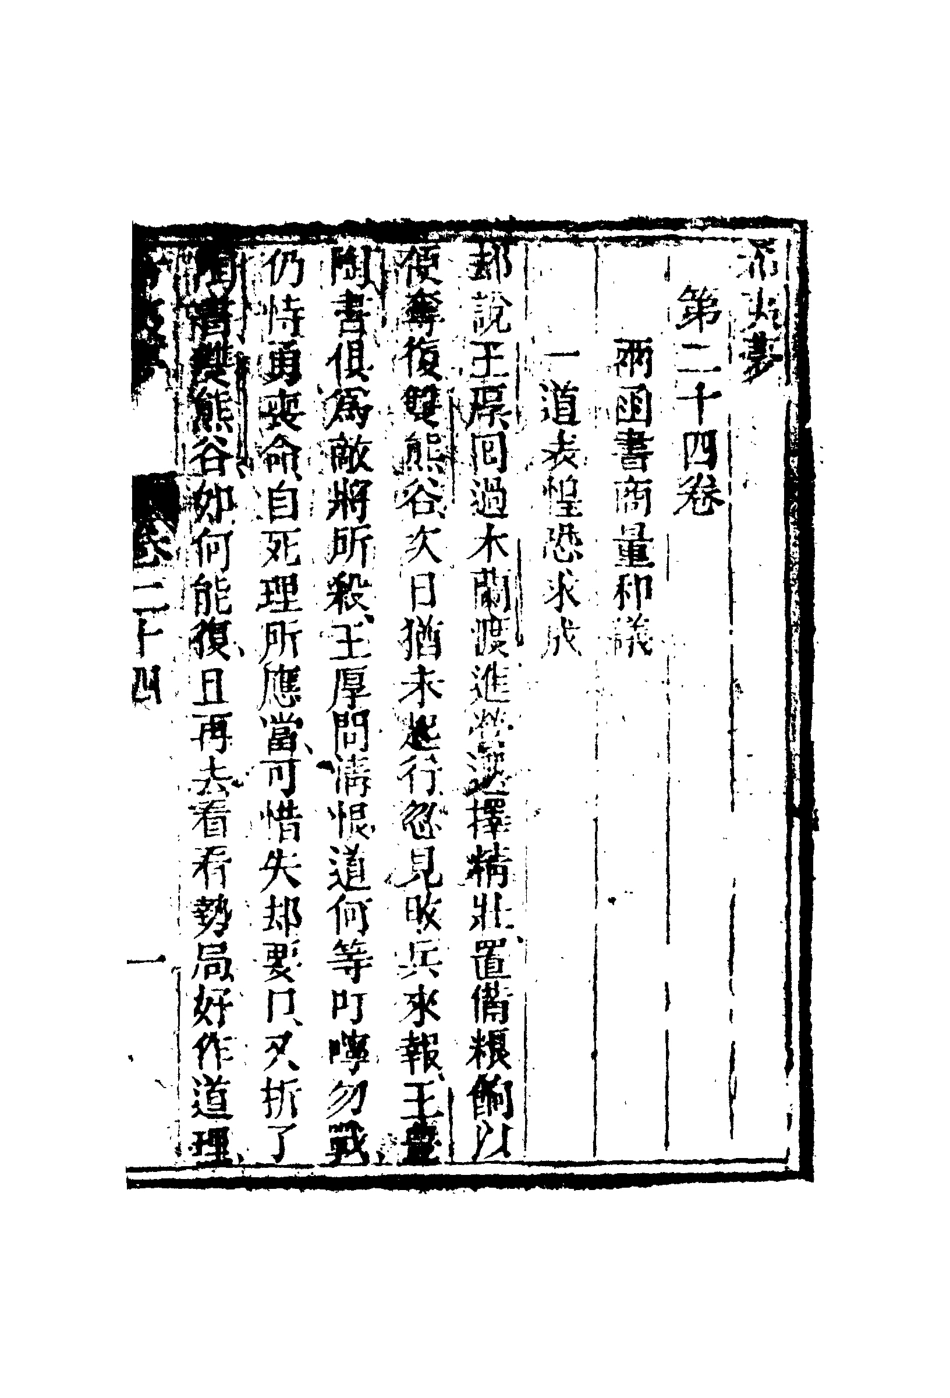 希夷夢
第二十四卷
兩函書商量和議
一道表惶恐求成
却說王厚回過木蘭渡進營選擇精壯置備糗餉以
便奪復雙熊谷次日猶未起行忽見敗兵來報王豐
陶書俱爲敵將所殺王厚問淸恨道何等叮嚀勿戰
仍恃勇喪命自死理所應當可惜失却要口又折了
陶書雙熊谷如何能復且再去看看勢局好作道理
卷二十四
一